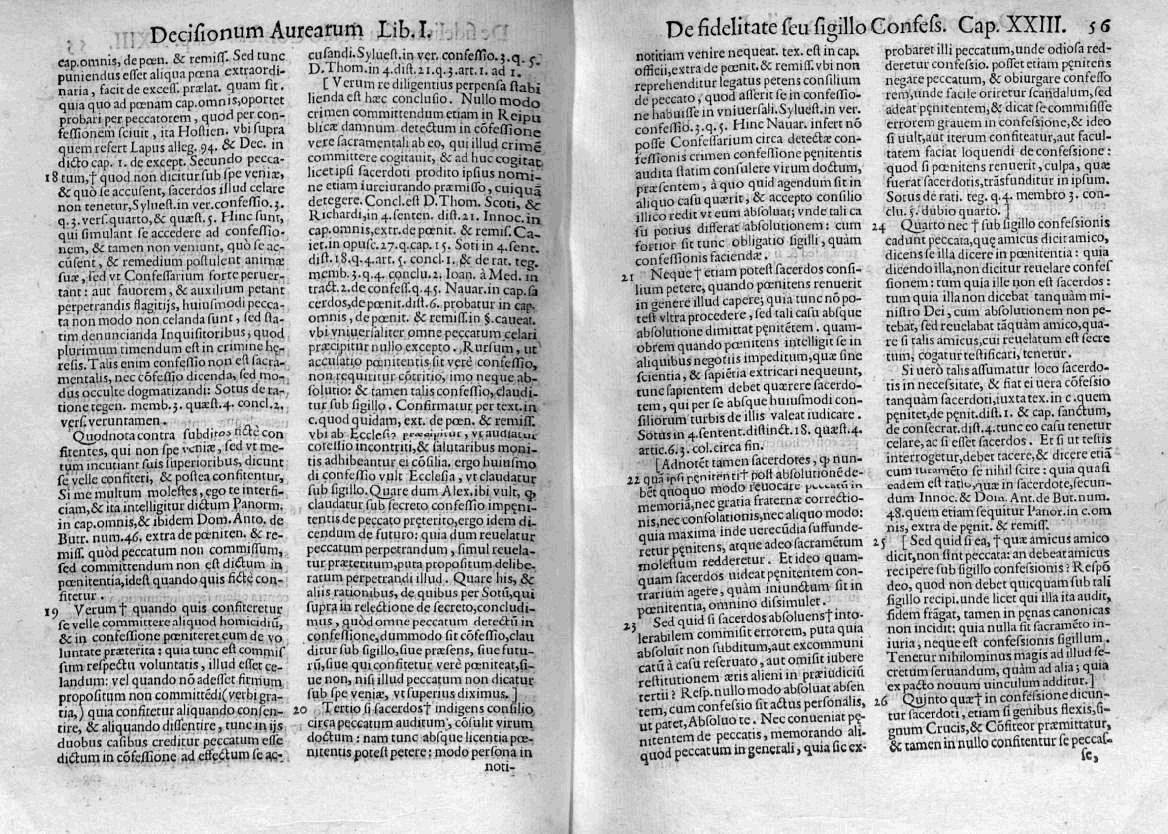 Decisionum Aurearum Lib. I.
cap. omnis, de pœn. & remiss. Sed tunc
puniendus esset aliqua pœna extraordi-
naria, facit de excess. prælat. quam sit.
quia quo ad pœnam cap. omnis, oportet
probari per peccatorem, quod per con-
fessionem sciuit, ita Hostien. vbi supra
quem refert Lapus alleg. 94. & Dec. in
dicto cap. 1. de except. Secundo pecca-
18 tum,† quod non dicitur sub spe veniæ,
& quò se accusent, sacerdos illud celare
non tenetur, Syluest. in ver. confessio. 3.
q. 3. vers. quarto, & quæst. 5. Hinc sunt,
qui simulant se accedere ad confessio-
nem, & tamen non veniunt, quò se ac-
cusent, & remedium postulent animæ
suæ, sed vt Confessarium forte peruer-
tant: aut fauorem, & auxilium petant
perpetrandis flagitijs, huiusmodi pecca-
ta non modo non celanda sunt, sed sta-
tim denuncianda Inquisitoribus, quod
plurimum timendum est in crimine hę-
resis. Talis enim confessio non est sacra-
mentalis, nec cõfessio dicenda, sed mo-
dus occulte dogmatizandi: Sotus de ra-
tione tegen. memb. 3. quæst. 4. concl. 2,
vers. veruntamen.
Quod nota contra subditos fictè con
fitentes, qui non spe veniæ, sed vt me-
tum incutiant suis superioribus, dicunt
se velle confiteri, & postea confitentur,
Si me multum molestes, ego te interfi-
ciam, & ita intelligitur dictum Panorm.
in cap. omnis, & ibidem Dom. Anto. de
Butr. num. 46. extra de pœniten. & re-
miss. quòd peccatum non commissum,
sed committendum non est dictum in
pœnitentia, idest quando quis fictè con-
fitetur.
19 Verum† quando quis confiteretur
se velle committere aliquod homicidiũ,
& in confessione pœniteret eum de vo
luntate præterita: quia tunc est commis
sum respectu voluntatis, illud esset ce-
landum: vel quando nõ adesset firmum
propositum non committẽdi (verbi gra-
tia,) quia confitetur aliquando consen-
tire, & aliquando dissentire, tunc in ijs
duobus casibus creditur peccatum esse
dictum in cõfessione ad effectum se ac-
cusandi. Syluest. in ver. confessio. 3. q. 5.
D. Thom. in 4. dist. 21. q. 3. art. 1. ad 1.
[ Verum re diligentius perpensa stabi
lienda est hæc conclusio. Nullo modo
crimen committendum etiam in Reipu
blicæ damnum detectum in cõfessione
vere sacramentali ab eo, qui illud crimẽ
committere cogitauit, & ad huc cogitat
licet ipsi sacerdoti prodito ipsius nomi-
ne etiam iureiurando præmisso, cuiquã
detegere. Concl. est D. Thom. Scoti, &
Richardi, in 4. senten. dist. 21. Innoc. in
cap. omnis, extr. de pœnit. & remiss. Ca-
iet. in opusc. 27. q. cap. 15. Soti in 4. sent.
dist. 18. q. 4. art. 5. concl. 1. & de rat. teg.
memb. 3. q. 4. conclu. 2. Ioan. à Med. in
tract. 2. de confess. q. 45. Nauar. in cap. sa
cerdos, de pœnit. dist. 6. probatur in cap.
omnis, de pœnit. & remiss. in §. caueat.
vbi vniuersaliter omne peccatum celari
præcipitur nullo excepto. Rursum, ut
accusatio pœnitentis sit verè confessio,
non requiritur cõtritio, imo neque ab-
solutio: & tamen talis confessio, claudi-
tur sub sigillo. Confirmatur per text. in
c. quod quidam, ext. de pœn. & remiss.
vbi ab Ecclesia præcipitur, vt audiatur
cõfessio incontriti, & salutaribus moni-
tis adhibeantur ei cõsilia. ergo huiusmo
di confessio vult Ecclesia, vt claudatur
sub sigillo. Quare dum Alex. ibi vult, ꝙ
claudatur sub secreto confessio impeni-
tentis de peccato pręterito, ergo idem di-
cendum de futuro: quia dum reuelatur
peccatum perpetrandum, simul reuela-
tur præteritum, puta propositum delibe-
ratum perpetrandi illud. Quare his, &
aliis rationibus, de quibus per Sotũ, qui
supra in relectione de secreto, concludi-
mus, quòd omne peccatum detectũ in
confessione, dummodo sit cõfessio, clau
ditur sub sigillo, siue præsens, siue futu-
rũ, siue qui confitetur verè pœniteat, si-
ue non, nisi illud peccatum non dicatur
sub spe veniæ, vt superius diximus. ]
20 Tertio si sacerdos† indigens consilio
circa peccatum auditum, cõsulit virum
doctum: nam tunc absque licentia pœ-
nitentis potest petere: modo persona in
noti-
De fidelitate seu sigillo Confess. Cap. XXIII. 56
notitiam venire nequeat. tex. est in cap.
officii, extra de pœnit. & remiss. vbi non
reprehenditur legatus petens consilium
de peccato, quod asserit se in confessio-
ne habuisse in vniuersali. Syluest. in ver.
confessio. 3. q. 5. Hinc Nauar. infert nõ
posse Confessarium circa detectæ con-
fessionis crimen confessione pęnitentis
audita statim consulere virum doctum,
præsentem, à quo quid agendum sit in
aliquo casu quærit, & accepto consilio
illico redit vt eum absoluat; vnde tali ca
su potius differat absolutionem: cum
fortior sit tunc obligatio sigilli, quàm
confessionis faciendæ.
21 Neque† etiam potest sacerdos consi-
lium petere, quando pœnitens renuerit
in genere illud capere; quia tunc nõ po-
test vltra procedere, sed tali casu absque
absolutione dimittat pęnitẽtem. quam-
obrem quando pœnitens intelligit se in
aliquibus negotiis impeditum, quæ sine
scientia, & sapiẽtia extricari nequeunt,
tunc sapientem debet quærere sacerdo-
tem, qui per se absque huiusmodi con-
siliorum turbis de illis valeat iudicare.
Sotus in 4. sentent. distinct. 18. quæst. 4.
artic. 6. 3. col. circa fin.
[Adnotẽt tamen sacerdotes, ꝙ nun-
22 quã ipsi pęnitenti† post absolutionẽ de-
bẽt quoquo modo reuocare peccatũ in
memoriã, nec gratia fraternæ correctio-
nis, nec consolationis, nec aliquo modo:
quia maxima inde uerecũdia suffunde-
retur pęnitens, atque adeo sacramẽtum
molestum redderetur. Et ideo quam-
quam sacerdos uideat pęnitentem con-
trarium agere, quàm iniunctum sit in
pœnitentia, omnino dissimulet.
23 Sed quid si sacerdos absoluens† into-
lerabilem commisit errorem, puta quia
absoluit non subditum, aut excommuni
catũ à casu reseruato, aut omisit iubere
restitutionem æris alieni in præiudiciũ
tertii? Resp. nullo modo absoluat absen
tem, cum confessio sit actus personalis,
ut patet, Absoluo te. Nec conueniat pę-
nitentem de peccatis, memorando ali-
quod peccatum in generali, quia sic ex-
probaret illi peccatum, unde odiosa red-
deretur confessio. posset etiam pęnitens
negare peccatum, & obiurgare confesso
rem, unde facile oriretur scandalum, sed
adeat pęnitentem, & dicat se commisisse
errorem grauem in confessione, & ideo
si uult, aut iterum confiteatur, aut facul-
tatem faciat loquendi de confessione:
quod si pœnitens renuerit, culpa, quæ
fuerat sacerdotis, trãsfunditur in ipsum.
Sotus de rati. teg. q. 4. membro 3. con-
clu. 5. dubio quarto. ]
24 Quarto nec† sub sigillo confessionis
cadunt peccata, quę amicus dicit amico,
dicens se illa dicere in pœnitentia: quia
dicendo illa, non dicitur reuelare confes
sionem: tum quia ille non est sacerdos:
tum quia illa non dicebat tanquàm mi-
nistro Dei, cum absolutionem non pe-
tebat, sed reuelabat tãquàm amico, qua-
re si talis amicus, cui reuelatum est secre
tum, cogatur testificari, tenetur.
Si uerò talis assumatur loco sacerdo-
tis in necessitate, & fiat ei uera cõfessio
tanquàm sacerdoti, iuxta tex. in c. quem
pęnitet, de pęnit. dist. 1. & cap. sanctum,
de consecrat. dist. 4. tunc eo casu tenetur
celare, ac si esset sacerdos. Et si ut testis
interrogetur, debet tacere, & dicere etiã
cum iuramẽto se nihil scire: quia quasi
eadem est ratio, quæ in sacerdote, secun-
dum Innoc. & Dom. Ant. de But. num.
48. quem etiam sequitur Panor. in c. om
nis, extra de pęnit. & remiss.
25 [ Sed quid si ea,† quæ amicus amico
dicit, non sint peccata: an debeat amicus
recipere sub sigillo confessionis? Respõ
deo, quod non debet quicquam sub tali
sigillo recipi. unde licet qui illa ita audit,
fidem frãgat, tamen in pęnas canonicas
non incidit: quia nulla fit sacramẽto in-
iuria, neque est confessionis sigillum.
Tenetur nihilominus magis ad illud se-
cretum seruandum, quàm ad alia; quia
ex pacto nouum uinculum additur. ]
26 Quinto quæ† in confessione dicun-
tur sacerdoti, etiam si genibus flexis, si-
gnum Crucis, & Cõfiteor præmittatur,
& tamen in nullo confitentur se peccas-
se,